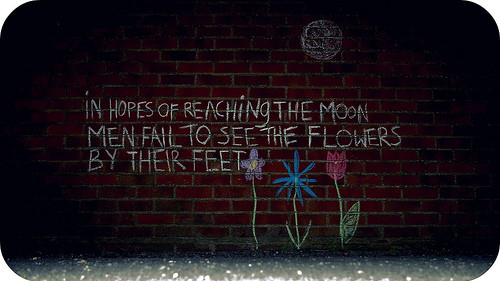 iN HOPES OF REACHiNG THE MOON
MEN FAIL TO SEE THE FLOWERS
BY THEIR FEET